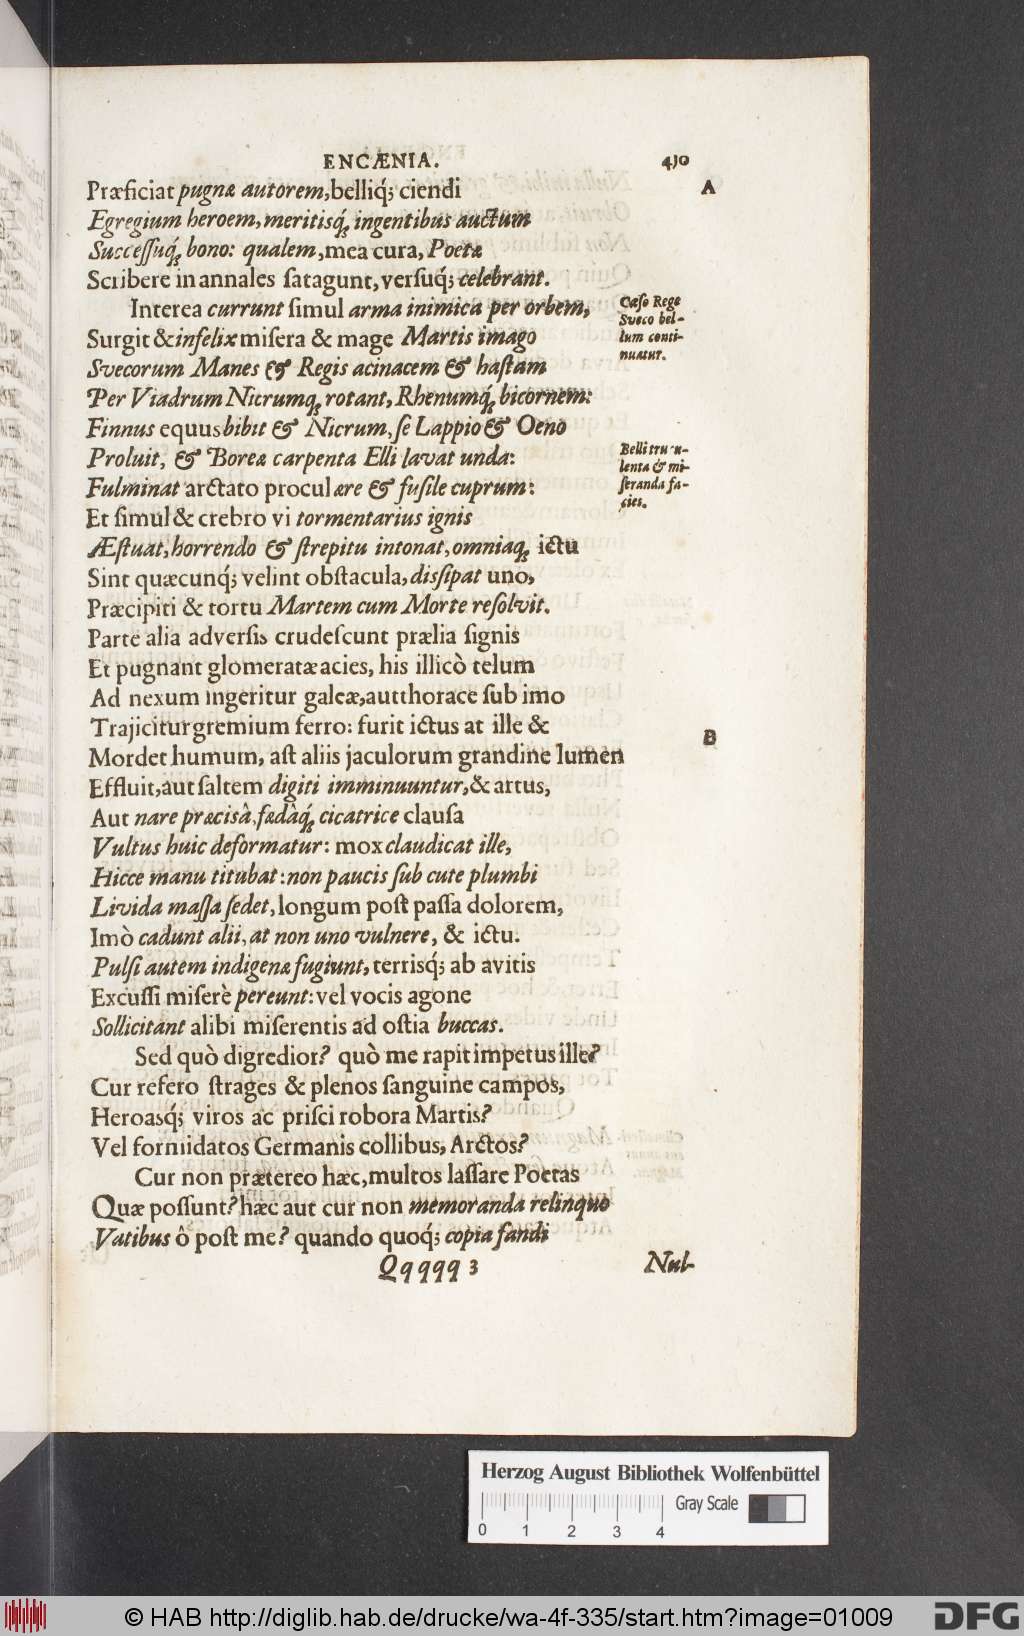 ENCÆNIA. 410
Præficiat pugnæ autorem, belliq́; ciendi A
Egregium heroem, meritisq́; ingentibus auctum
Successuq́; bono: qualem, mea cura, Poetæ
Scribere in annales satagunt, versuq́; celebrant.
Interea currunt simul arma inimica per orbem,
Surgit & infelix misera & mage Martis imago
Svecorum Manes & Regis acinacem & hastam
Per Viadrum Nicrumq; rotant, Rhenumq́; bicornem:
Finnus equus bibit & Nicrum, se Lappio & Oeno
Proluit, & Boreæ carpenta Elli lavat unda:
Fulminat arctato procul ære & fusile cuprum:
Et simul & crebro vi tormentarius ignis
Æstuat, horrendo & strepitu intonat, omniaq; ictu
Sint quæcunq́; velint obstacula, dissipat uno,
Præcipiti & tortu Martem cum Morte resolvit.
Parte alia adversis crudescunt prælia signis
Et pugnant glomeratæ acies, his illicò telum
Ad nexum ingeritur galeæ, aut thorace sub imo
Trajicitur gremium ferro: furit ictus at ille &
Mordet humum, ast aliis jaculorum grandine lumen
Effluit, aut saltem digiti imminuuntur, & artus,
Aut nare præcisâ, fœdâq́; cicatrice clausa
Vultus huic deformatur: mox claudicat ille,
Hicce manu titubat: non paucis sub cute plumbi
Livida massa sedet, longum post passa dolorem,
Imò cadunt alii, at non uno vulnere, & ictu.
Pulsi autem indigenæ fugiunt, terrisq́; ab avitis
Excussi miserè pereunt: vel vocis agone
Sollicitant alibi miserentis ad ostia buccas.
Sed quò digredior? quò me rapit impetus ille?
Cur refero strages & plenos sanguine campos,
Heroasq́; viros ac prisci robora Martis?
Vel formidatos Germanis collibus, Arctos?
Cur non prætereo hæc, multos lassare Poetas
Quæ possunt? hæc aut cur non memoranda relinquo
Vatibus ô post me? quando quoq́; copia fandi
Qqqqq 3 Nul-
Cæso Rege
Sveco bel-
lum conti-
nuatur.
Belli tru u-
lenta & mi-
seranda fa-
cies.
B
Herzog August Bibliothek Wolfenbüttel
Gray Scale
0 1 2 3 4
© HAB http://diglib.hab.de/drucke/wa-4f-335/start.htm?image=01009
DFG